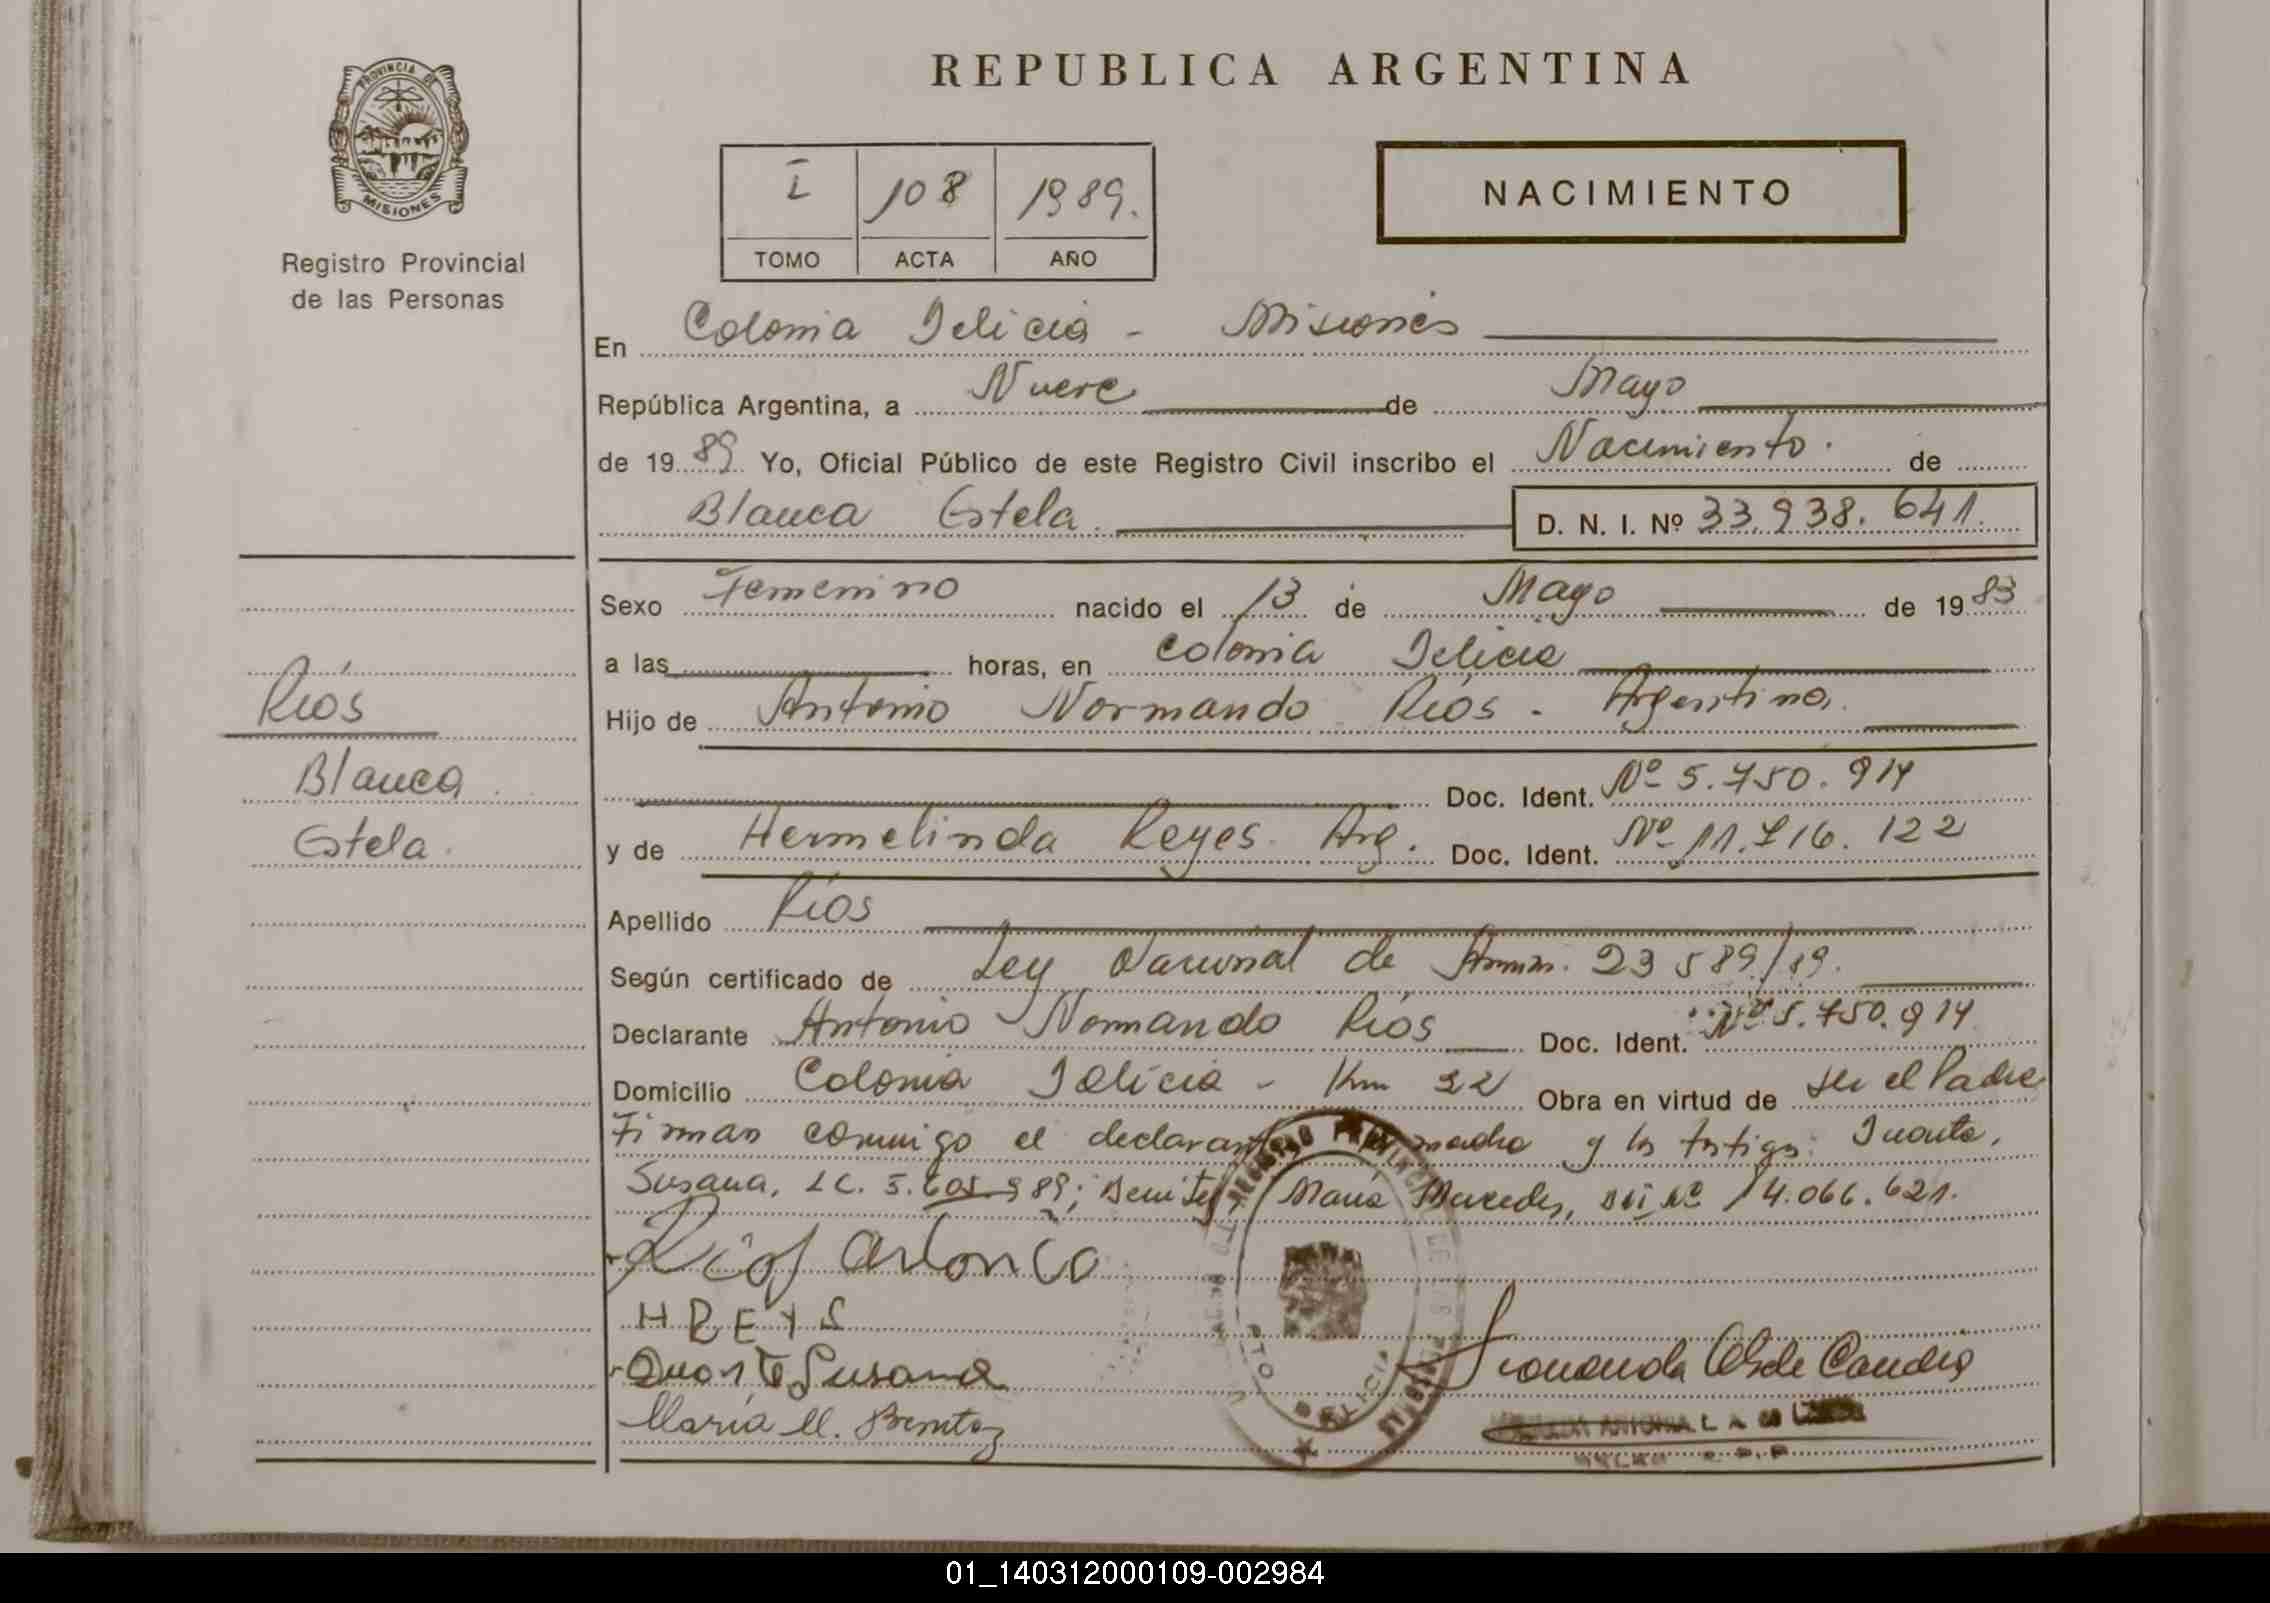 PROVINCIA DE
MISIONES
Registro Provincial
de las Personas
REPUBLICA ARGENTINA
I 108 1989.
TOMO ACTA AÑO
NACIMIENTO
En Colonia Delicia - Misiones
República Argentina, a Nueve de Mayo
de 1989 Yo, Oficial Público de este Registro Civil inscribo el Nacimiento. de
Blanca Estela. D. N. I. Nº 33.938.641.
Sexo Femenino nacido el 13 de Mayo de 1983
a las horas, en Colonia Delicia
Hijo de Antonio Normando Ríos - Argentino.
Doc. Ident. Nº 5.750.914
y de Hermelinda Reyes. Arg. Doc. Ident. Nº 11.716.122
Apellido Ríos
Según certificado de Ley Nacional de Amn. 23589/89.
Declarante Antonio Normando Ríos Doc. Ident. Nº 5.750.914
Domicilio Colonia Delicia - Km 22 Obra en virtud de ser el Padre
Firman conmigo el declarante madre y los testigos: Duarte,
Susana, LC. 5.601.989; Benitez María Mercedes, DNI Nº 14.066.621.
Ríos Antonio
H REYS
Duarte Susana
María M. Benitez
Ríos
Blanca
Estela.
DELICIA
01_140312000109-002984